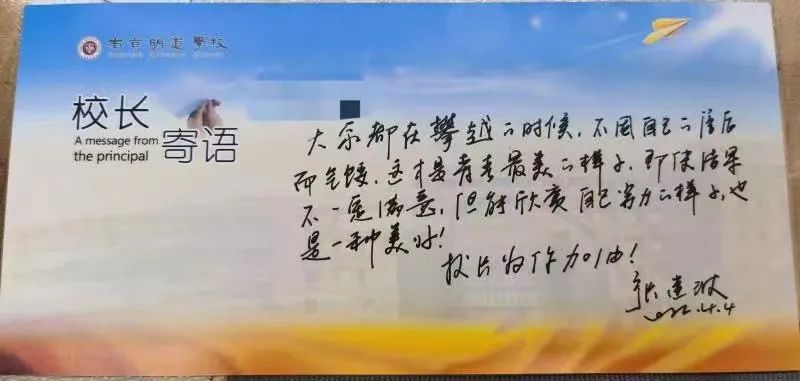 南京明道学校
校长
寄语
A message from
the principal
大家都在攀越的时候，不因自己的落后
而气馁，这才是青春最美的样子，即使结果
不一定满意，但能欣赏自己努力的样子，也
是一种美好！
校长为你加油！
张建波
2022.4.4